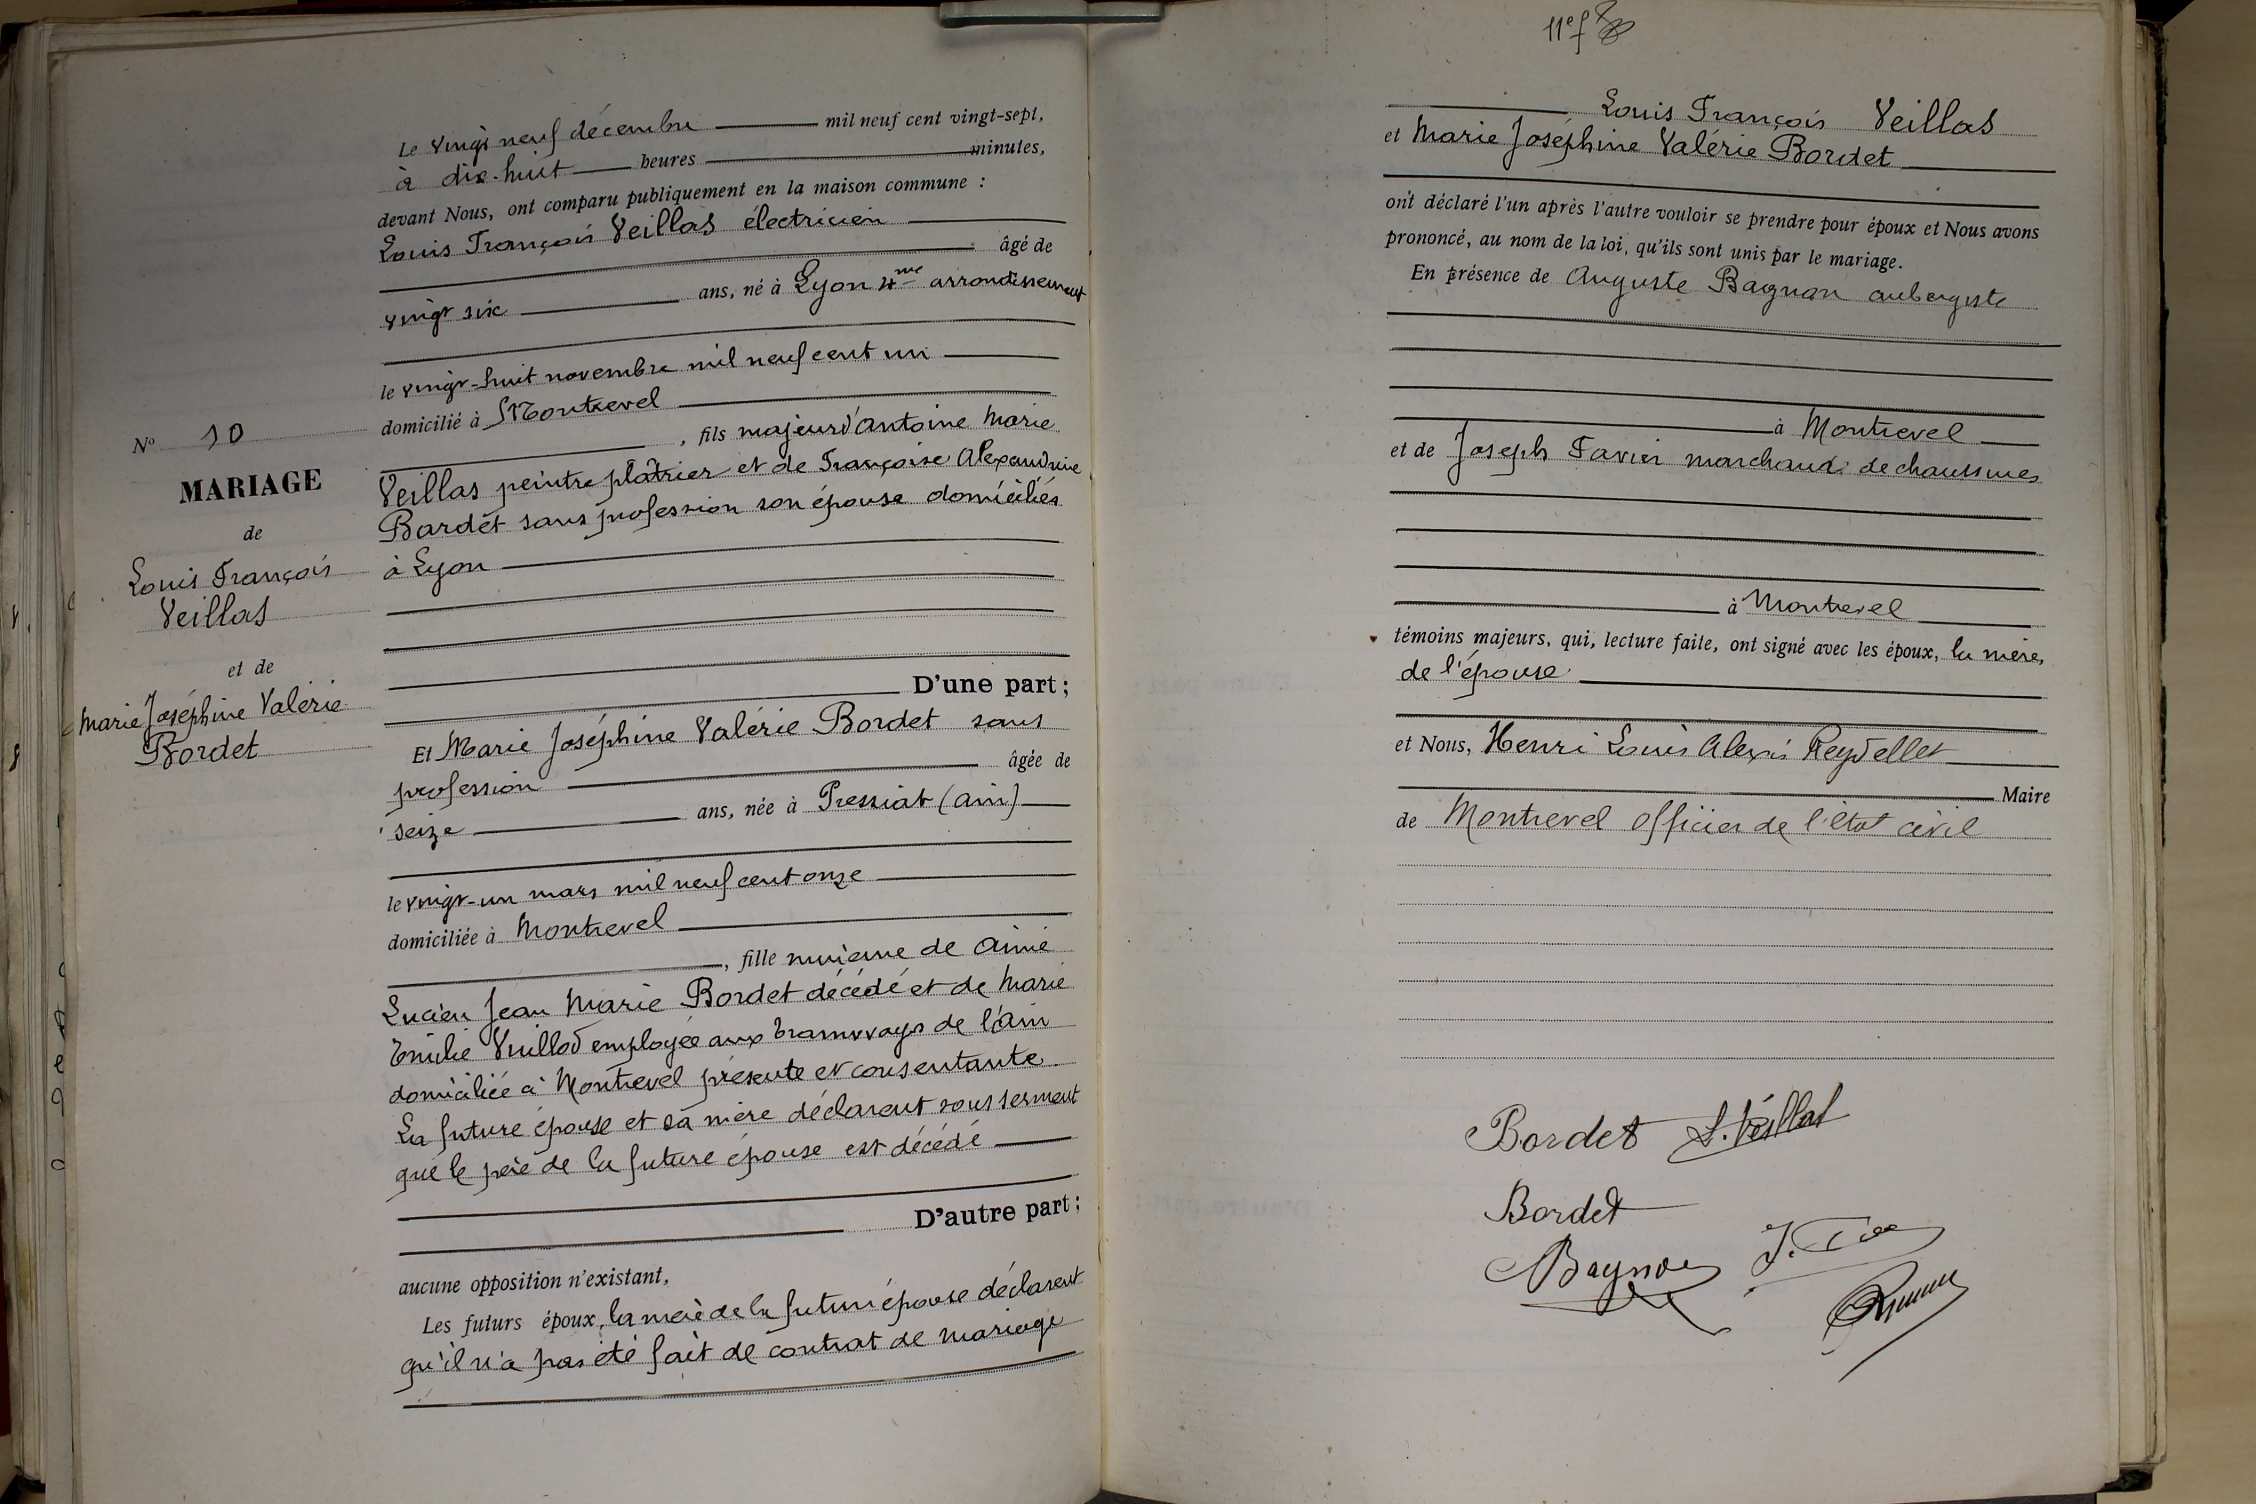 N° 10
MARIAGE
de
Louis François
Veillas
et de
Marie Joséphine Valérie
Bordet
Le vingt neuf décembre mil neuf cent vingt-sept,
à dix-huit heures minutes,
devant Nous, ont comparu publiquement en la maison commune :
Louis François Veillas électricien
âgé de
vingt six ans, né à Lyon 4me arrondissement
le vingt-huit novembre mil neuf cent un
domicilié à Montrevel
, fils majeur d'Antoine Marie
Veillas peintre plâtrier et de Françoise Alexandrine
Bardet sans profession son épouse domiciliés
à Lyon
D'une part ;
Et Marie Joséphine Valérie Bordet sans
profession âgée de
seize ans, née à Pressiat (Ain)
le vingt-un mars mil neuf cent onze
domiciliée à Montrevel
, fille mineure de Aimé
Lucien Jean Marie Bordet décédé et de Marie
Emilie Vuillod employée aux tramways de l'Ain
domiciliée à Montrevel présente et consentante
La future épouse et sa mère déclarent sous serment
que le père de la future épouse est décédé
D'autre part :
aucune opposition n'existant,
Les futurs époux, la mère de la future épouse déclarent
qu'il n'a pas été fait de contrat de mariage
11e f
Louis François Veillas
et Marie Joséphine Valérie Bordet
ont déclaré l'un après l'autre vouloir se prendre pour époux et Nous avons
prononcé, au nom de la loi, qu'ils sont unis par le mariage.
En présence de Auguste Bagnon aubergiste
à Montrevel
et de Joseph Favier marchand de chaussures
à Montrevel
témoins majeurs, qui, lecture faite, ont signé avec les époux, la mère,
de l'épouse
et Nous, Henri Louis Alexis Reydellet
Maire
de Montrevel officier de l'état civil
Bordet L. Veillas
Bordet
Bagnon